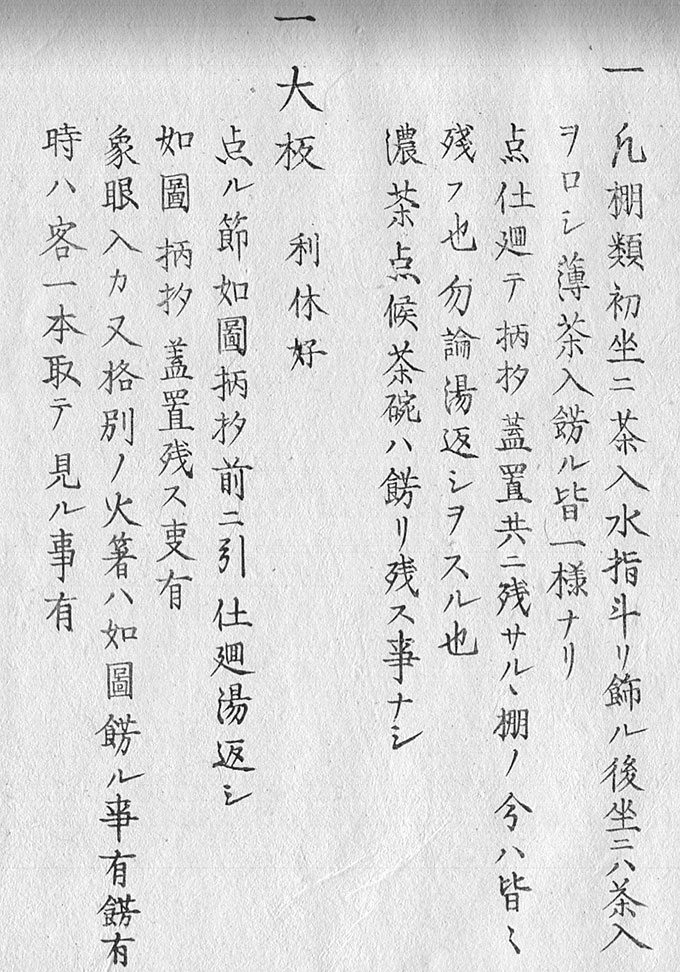 一 凢棚類初坐ニ茶入水指斗リ飾ル後坐ニハ茶入
ヲロシ薄茶入餝ル皆一様ナリ
点仕廻テ柄杓蓋置共ニ残サルヽ棚ノ分ハ皆〻
残フ也勿論湯返シヲスル也
濃茶点候茶碗ハ餝リ残ス事ナシ
一 大板 利休好
点ル節如圖柄杓前ニ引仕廻湯返シ
如圖柄杓蓋置残ス叓有
象眼入カ又格別ノ火箸ハ如圖餝ル事有餝有
時ハ客一本取テ見ル事有